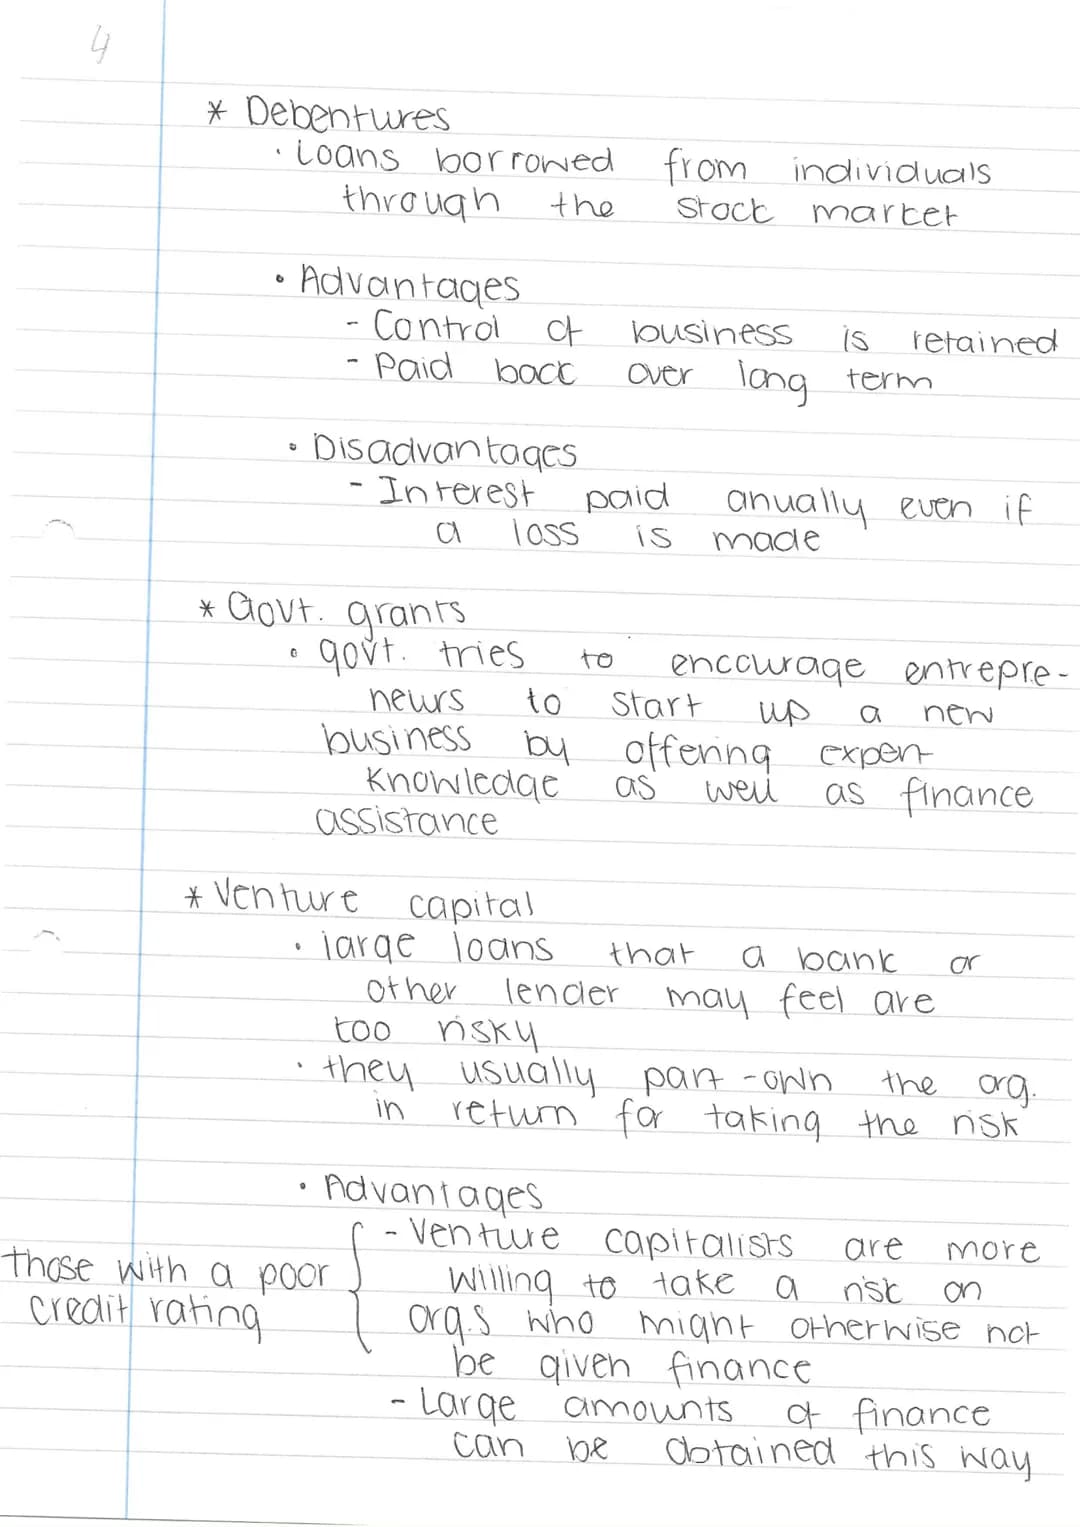 4
* Debentures
• Loans borrowed from individuals
through the stock market
• Advantages
- Control of business is retained
- Paid back over long term
• Disadvantages
- Interest paid anually even if
a loss is made
* Govt. grants
• govt. tries to encourage entrepre-
neurs to start up a new
business by offering expert
knowledge as well as finance
assistance
* Venture capital
• large loans that a bank or
other lender may feel are
too risky
• they usually part-own the org.
in return for taking the risk
• Advantages
- Venture capitalists are more
willing to take a risk on
orgs who might otherwise not
be given finance
those with a poor
credit rating
- Large amounts of finance
can be obtained this way